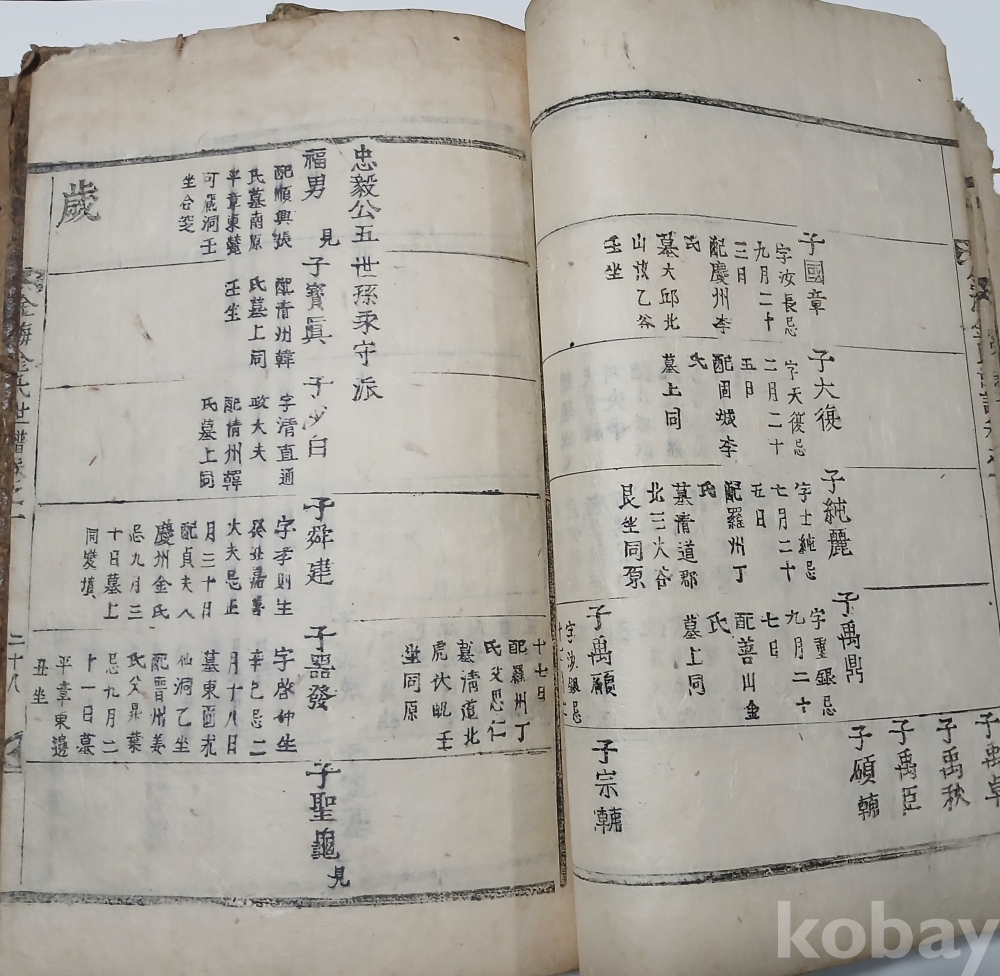 子國章
字汝長忌
九月二十
三日
配慶州李
氏
墓大邱北
山漆乙谷
壬坐
子大復
字天復忌
二月二十
五日
配固城李
氏
墓上同
子純麗
字士純忌
七月二十
五日
配羅州丁
氏
墓清道郡
北三火谷
艮坐同原
子禹鼎
字重銀忌
九月二十
七日
配善山金
氏
墓上同
子禹
字汝銀忌
子禹卓
子禹秋
子禹臣
子碩輔
子宗輔
十七日
配羅州丁
氏父思仁
墓清道北
虎伏峴壬
坐同原
忠毅公五世孫永守派
福男 見
配順興張
氏墓南原
半章東麓
可洞壬
坐合窆
歲
子寶眞
配青州韓
氏墓上同
壬坐
子少白
字清直通
政大夫
配情州韓
氏墓上同
子舜建
字孝則生
癸丑嘉善
大夫忌正
月三十日
配貞夫人
慶州金氏
忌九月三
十日墓上
同雙墳
子器發
字啓仲生
辛巳忌二
月十八日
墓東面尤
仙洞乙坐
配晋州姜
氏父是葉
忌九月二
十一日墓
平章東邊
丑坐
子聖龜 見
金海金氏世譜卷之一
二十八
kobay